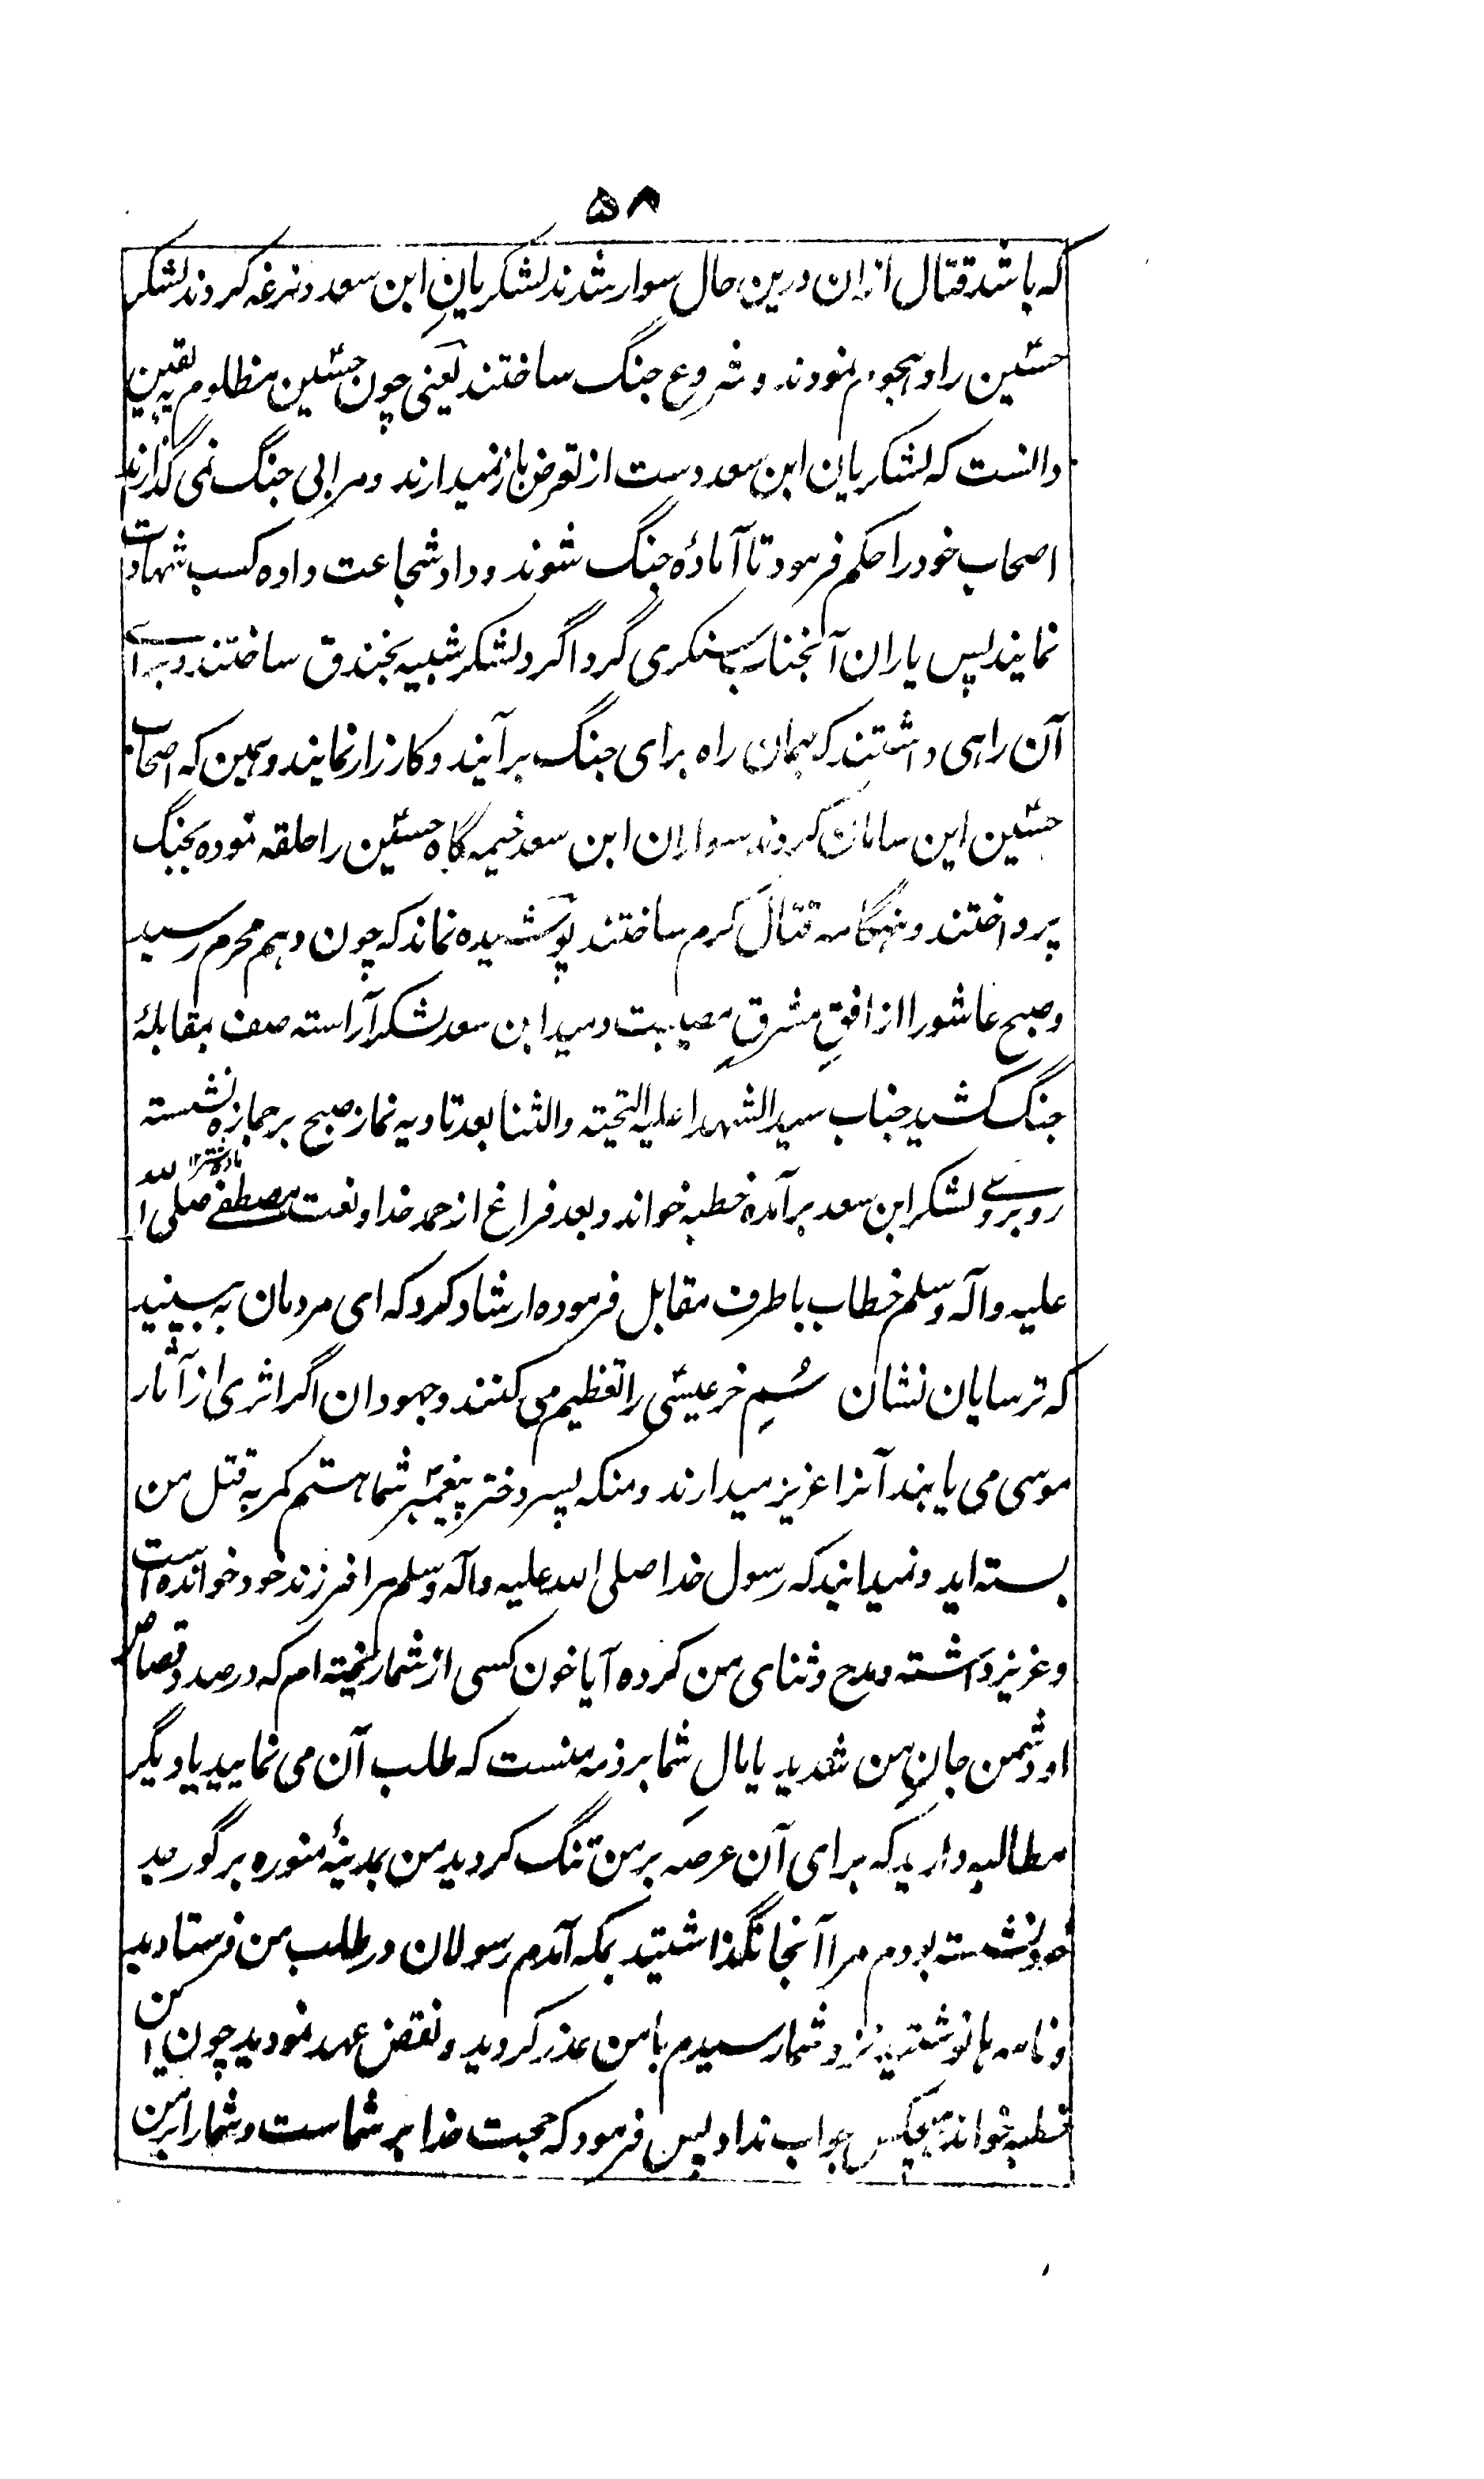 ۵۸
که باشد قتال ازان درین حال سوار شدند لشکریانِ ابن سعد و نرغه کردند لشکر
حسین را و هجوم نمودند و شروع جنگ ساختند یعنی چون حسین مظلوم به یقین
دانست که لشکریان ابن سعد دست از تعرض باز نمیدارند و مرا بی جنگ نمی گذارند
اصحاب خود را حکم فرمود تا آمادهٔ جنگ شوند و داد شجاعت داده کسب شهادت
نمایند پس یاران آنجناب سنگری گرداگرد لشکر شبیه بخندق ساختند و برای
آن راهی داشتند که همان راه برای جنگ برآیند و کارزار نمایند و همین که اصحاب
حسین این سامان کردند سواران ابن سعد خیمه گاه حسین را حلقه نموده بجنگ
پرداختند و هنگامه قتال گرم ساختند پوشیده نماند که چون دهم محرم رسید
و صبح عاشورا از افقِ مشرقِ مصیبت دمید ابن سعد لشکر آراسته صف بمقابلهٔ
جنگ کشید جناب سید الشهدا علیه التحیته والثنا بعد تادیه نماز صبح بر جمازه نشسته
ماده شتر ۱۲
روبروے لشکر ابن سعد برآمده خطبه خواند و بعد فراغ از حمد خدا و نعت مصطفے صلی الله
علیه وآله وسلم خطاب با طرف مقابل فرموده ارشاد کرد که ای مردمان به بینید
که ترسایان نشان سُمِ خر عیسیٰ را تعظیم می کنند و جهودان اگر اثری از آثار
موسی می یابند آنرا عزیز میدارند و منکه پسر دختر پیغمبر شما هستم کمر به قتل من
بسته اید و نمیدانید که رسول خدا صلی الله علیه وآله وسلم مرا فرزند خود خوانده است
و عزیز داشته و مدح و ثنای من کرده آیا خون کسی از شما ریخته ام که در صدد قصاص
او دشمن جانِ من شدید یا مالِ شما بر ذمه منست که طلب آن می نمایید یا دیگر
مطالبه دارید که برای آن عرصه بر من تنگ کردید من بمدینهٔ منوره بر گور جد
خود نشسته بودم مرا آنجا نگذاشتید بمکه آمدم رسولان در طلب من فرستادید
و نامه ها نوشتید نزد شما رسیدم با من عذر کردید و نقض عهد نمودید چون این
خطبه خواند هیچکس جواب نداد پس فرمود که حجبت خدا بر شماست و شما را بر من